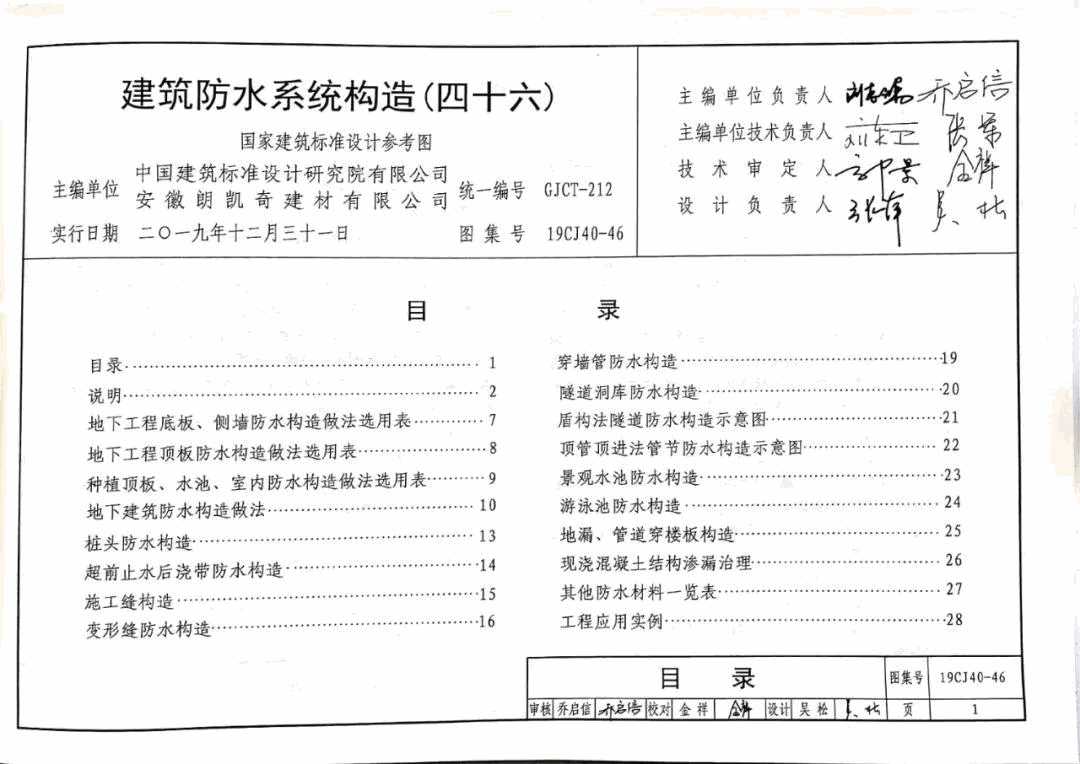 建筑防水系统构造(四十六)
国家建筑标准设计参考图
主编单位 中国建筑标准设计研究院有限公司
安徽朗凯奇建材有限公司
统一编号 GJCT-212
实行日期 二〇一九年十二月三十一日
图集号 19CJ40-46
主编单位负责人 乔启信
主编单位技术负责人
技术审定人 金祥
设计负责人 吴松
目 录
目录 1
说明 2
地下工程底板、侧墙防水构造做法选用表 7
地下工程顶板防水构造做法选用表 8
种植顶板、水池、室内防水构造做法选用表 9
地下建筑防水构造做法 10
桩头防水构造 13
超前止水后浇带防水构造 14
施工缝构造 15
变形缝防水构造 16
穿墙管防水构造 19
隧道洞库防水构造 20
盾构法隧道防水构造示意图 21
顶管顶进法管节防水构造示意图 22
景观水池防水构造 23
游泳池防水构造 24
地漏、管道穿楼板构造 25
现浇混凝土结构渗漏治理 26
其他防水材料一览表 27
工程应用实例 28
目 录 图集号 19CJ40-46
审核 乔启信 乔启信 校对 金祥 金祥 设计 吴松 吴松 页 1